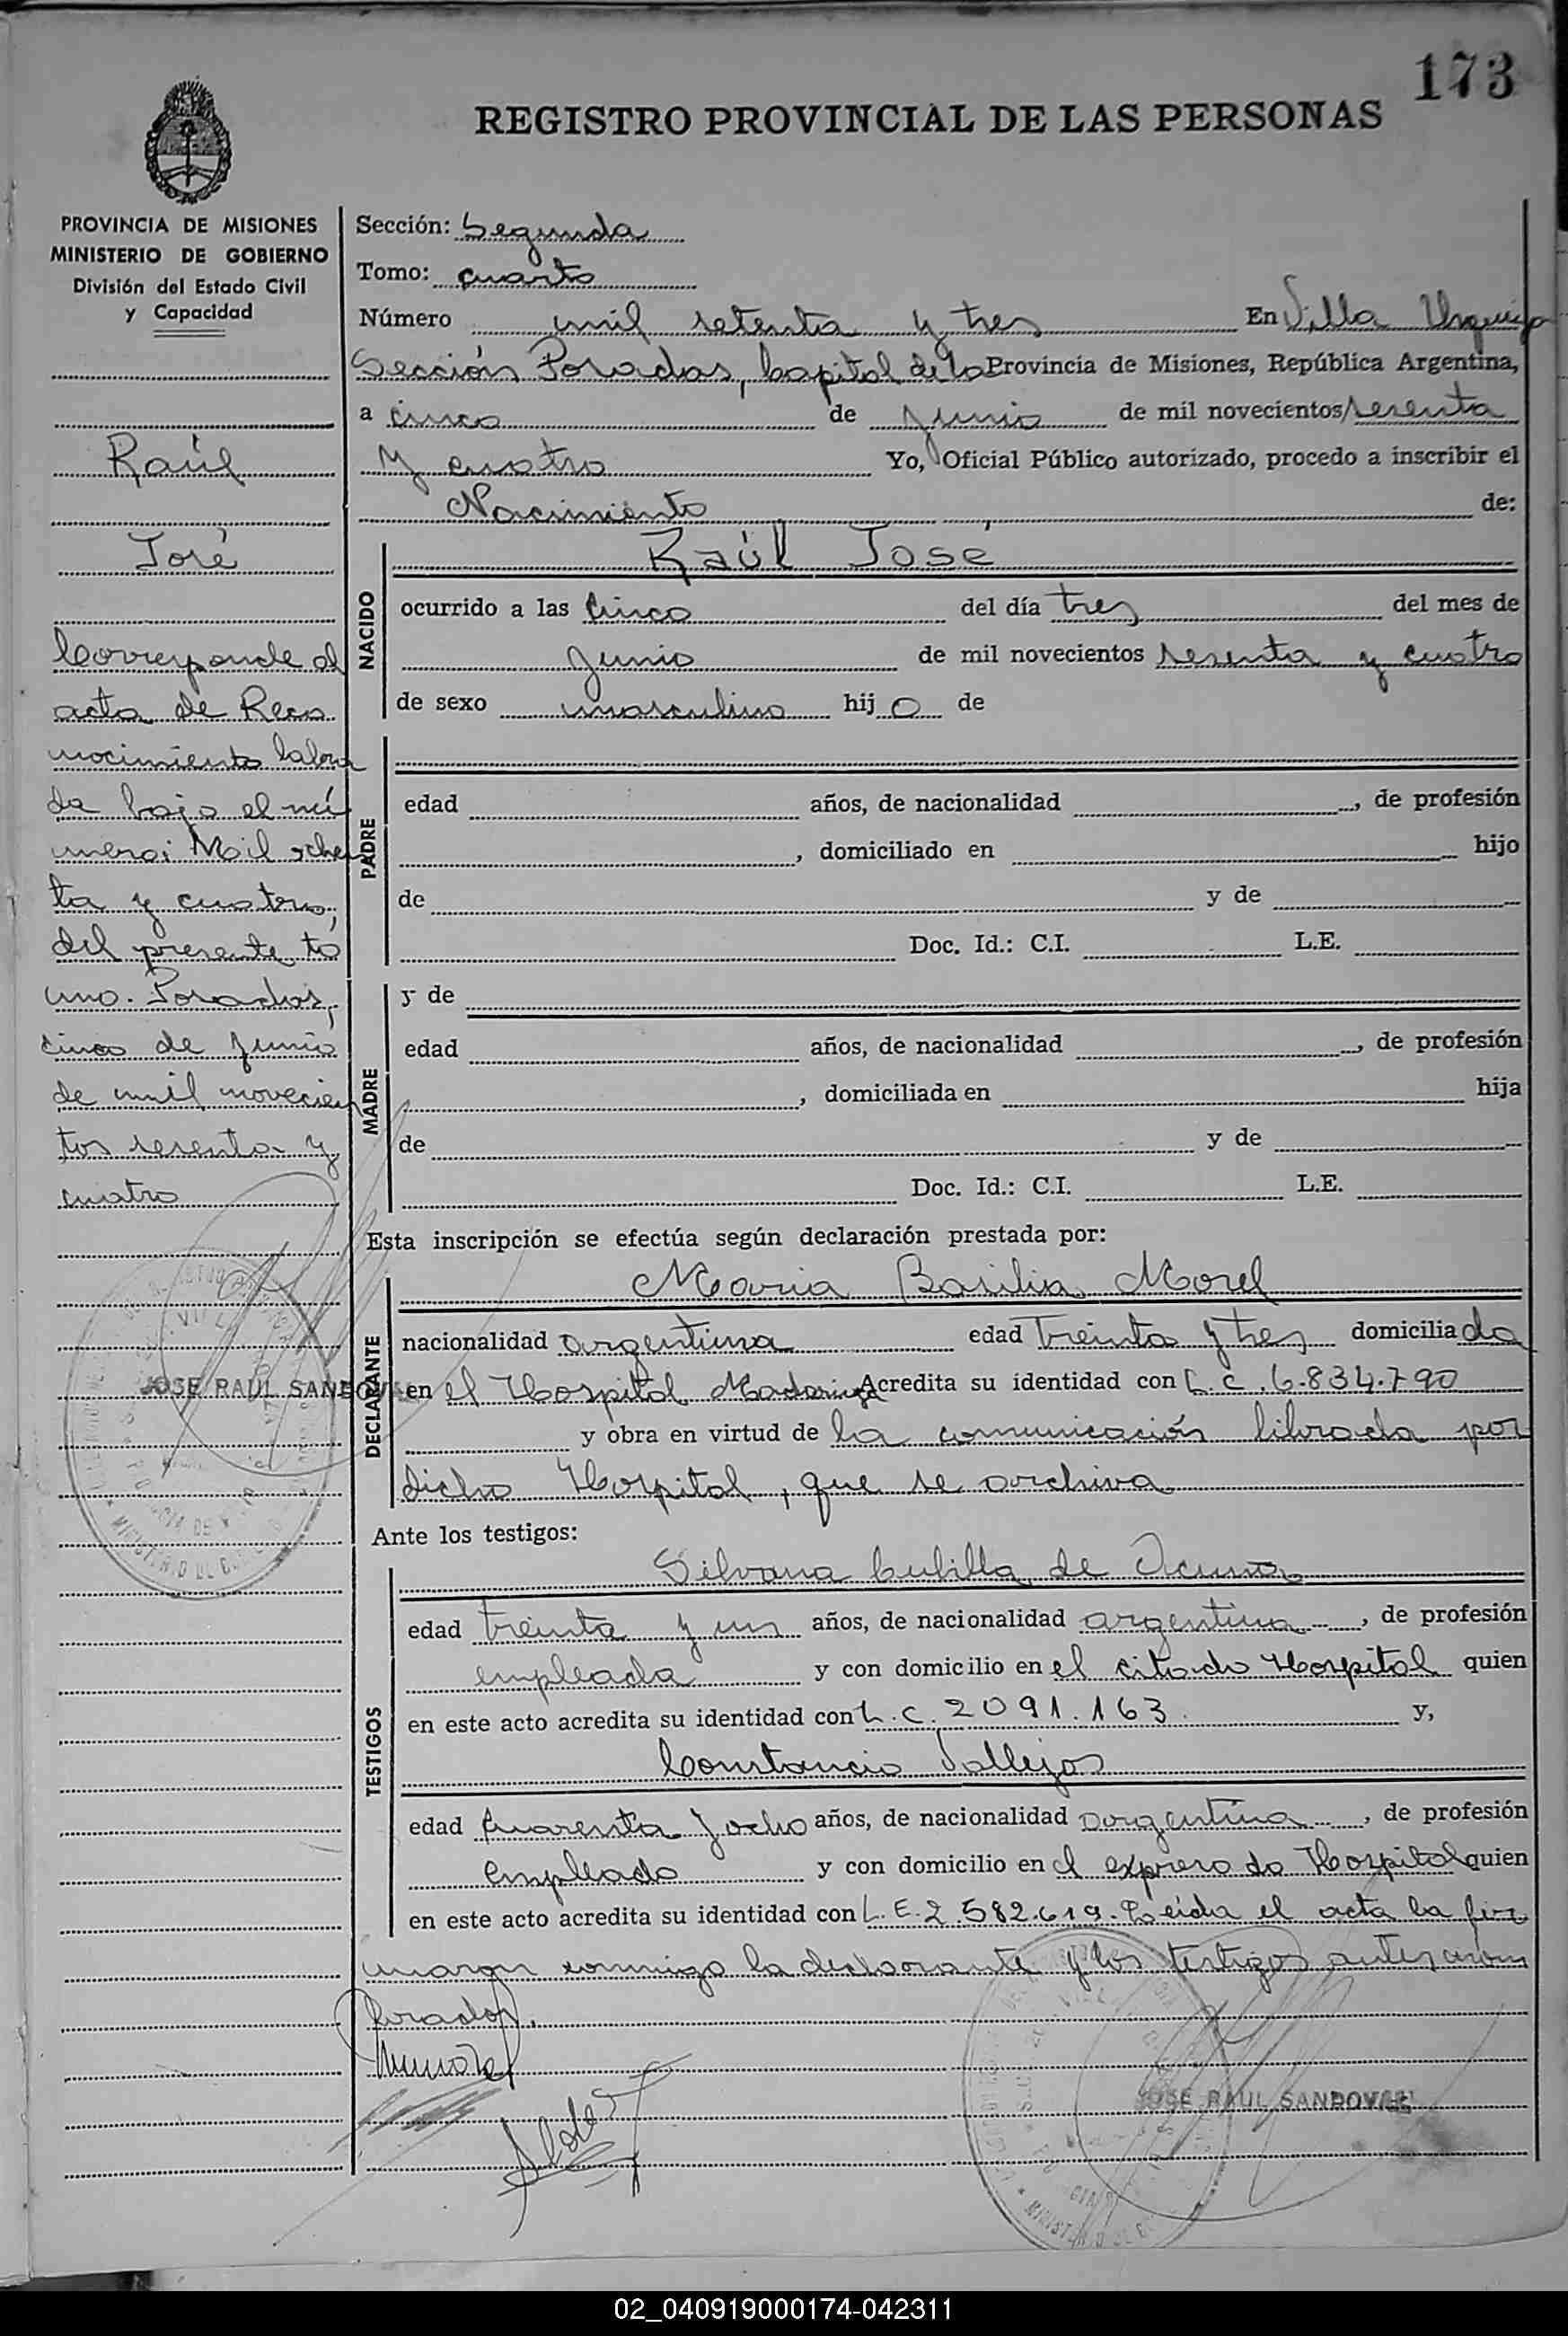 173
REGISTRO PROVINCIAL DE LAS PERSONAS
PROVINCIA DE MISIONES
MINISTERIO DE GOBIERNO
División del Estado Civil
y Capacidad
Raúl
José
Corresponde al
acta de Reco
nocimiento labra
da bajo el nú
mero: Mil ochen
ta y cuatro,
del presente to
mo. Posadas,
cinco de junio
de mil novecien
tos sesenta y
cuatro
JOSE RAUL SANDOVAL
Sección: Segunda
Tomo: cuarto
Número mil setenta y tres En Villa Urquiza
Sección Posadas, Capital de la Provincia de Misiones, República Argentina,
a cinco de junio de mil novecientos sesenta
y cuatro Yo, Oficial Público autorizado, procedo a inscribir el
Nacimiento de:
NACIDO
Raúl José
ocurrido a las cinco del día tres del mes de
junio de mil novecientos sesenta y cuatro
de sexo masculino hijo de
PADRE
edad años, de nacionalidad , de profesión
, domiciliado en hijo
de y de
Doc. Id.: C.I. L.E.
MADRE
y de
edad años, de nacionalidad , de profesión
, domiciliada en hija
de y de
Doc. Id.: C.I. L.E.
Esta inscripción se efectúa según declaración prestada por:
DECLARANTE
Maria Basilia Morel
nacionalidad argentina edad treinta y tres domiciliada
en el Hospital Madariaga Acredita su identidad con L.C. 6.834.790
y obra en virtud de la comunicación librada por
dicho Hospital, que se archiva
Ante los testigos:
TESTIGOS
Silvana Cubilla de Acuña
edad treinta y un años, de nacionalidad argentina , de profesión
empleada y con domicilio en el citado Hospital quien
en este acto acredita su identidad con L.C. 2091.163. y,
Constancio Vallejos
edad cuarenta y ocho años, de nacionalidad argentina , de profesión
empleado y con domicilio en el expresado Hospital quien
en este acto acredita su identidad con L.E. 2.582.619. Leída el acta la fir
maron conmigo la declarante y los testigos antes nom
brados.
JOSE RAUL SANDOVAL
02_040919000174-042311